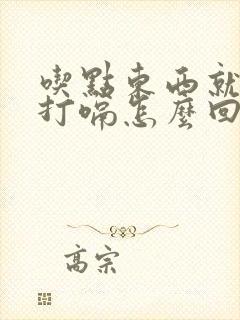 喫點東西就
打嗝怎麼回
高宗